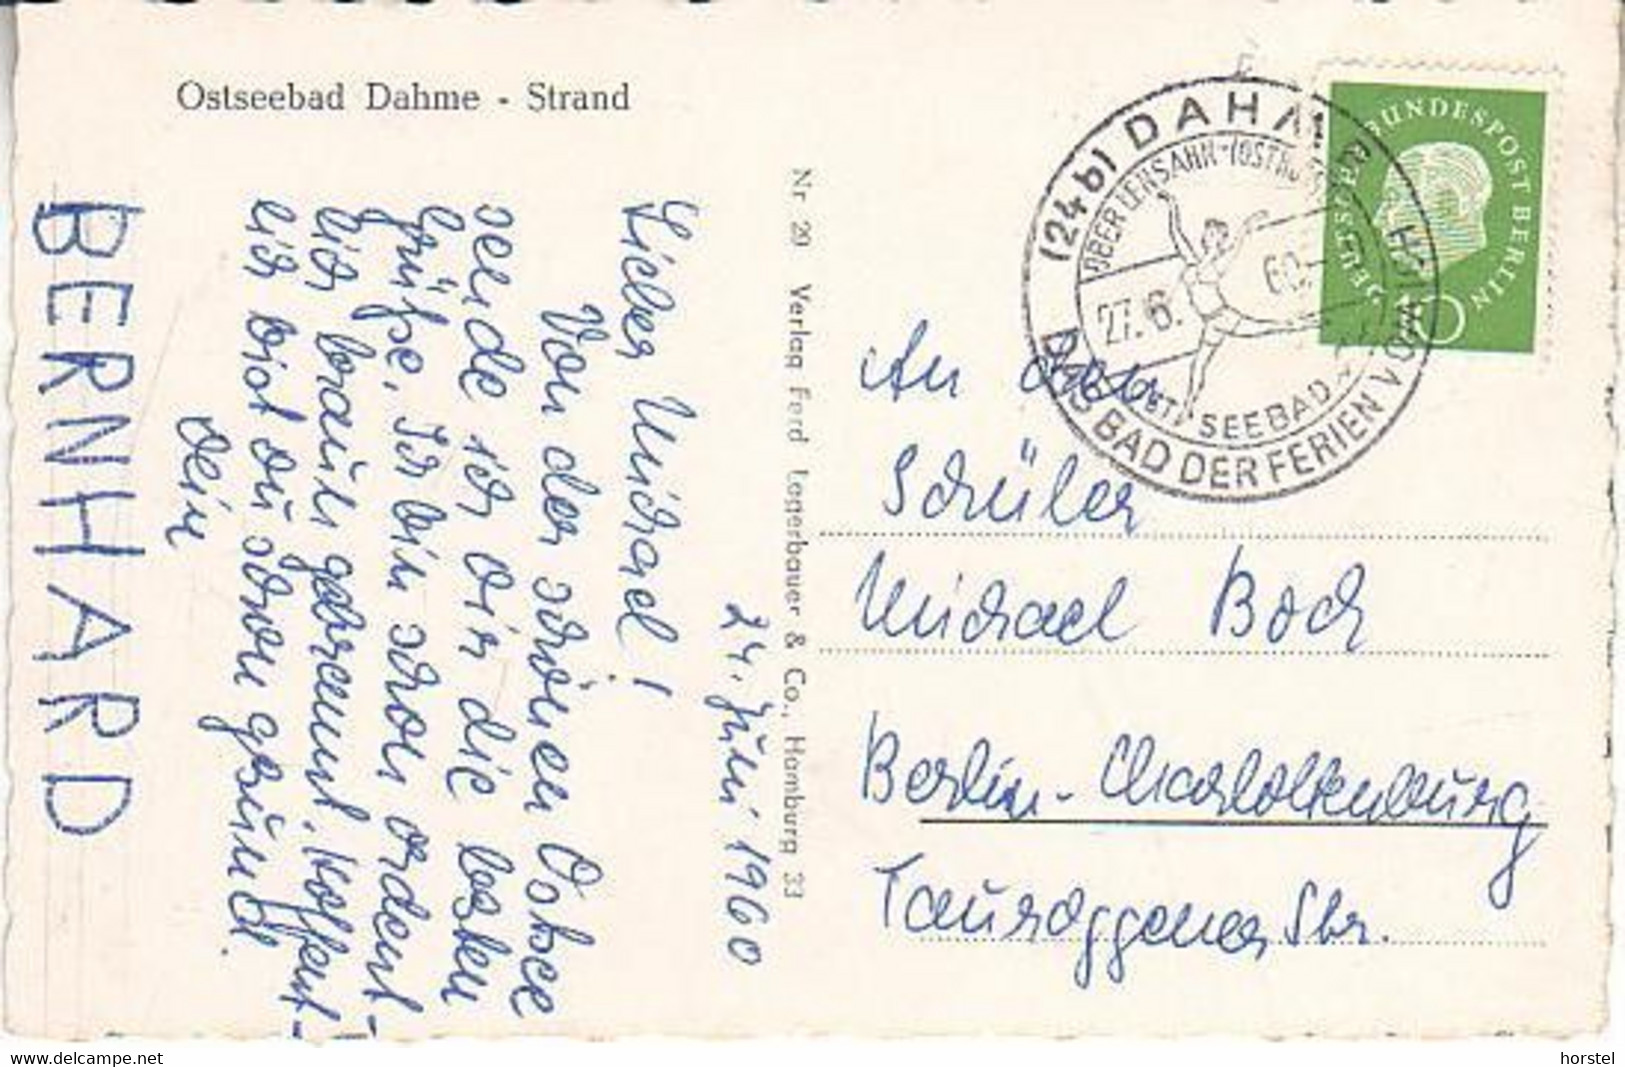 Ostseebad Dahme - Strand
24. Juni 1960
Lieber Michael!
Von der schönen Ostsee
sende ich dir die besten
Grüße. Ich bin schon ordent-
lich braun gebrannt. Hoffent-
lich bist du schon gesund.
Dein
BERNHARD
Nr. 29 Verlag Ferd. Lagerbauer & Co., Hamburg 33
(24b) DAHM
ÜBER LENSAHN-(OSTHOLST
27.6. 60.
OSTSEEBAD
DAS BAD DER FERIEN
DEUTSCHE BUNDESPOST BERLIN
10
An den
Schüler
Michael Boch
Berlin-Charlottenburg
Tauroggener Str.
www.delcampe.net
horstel